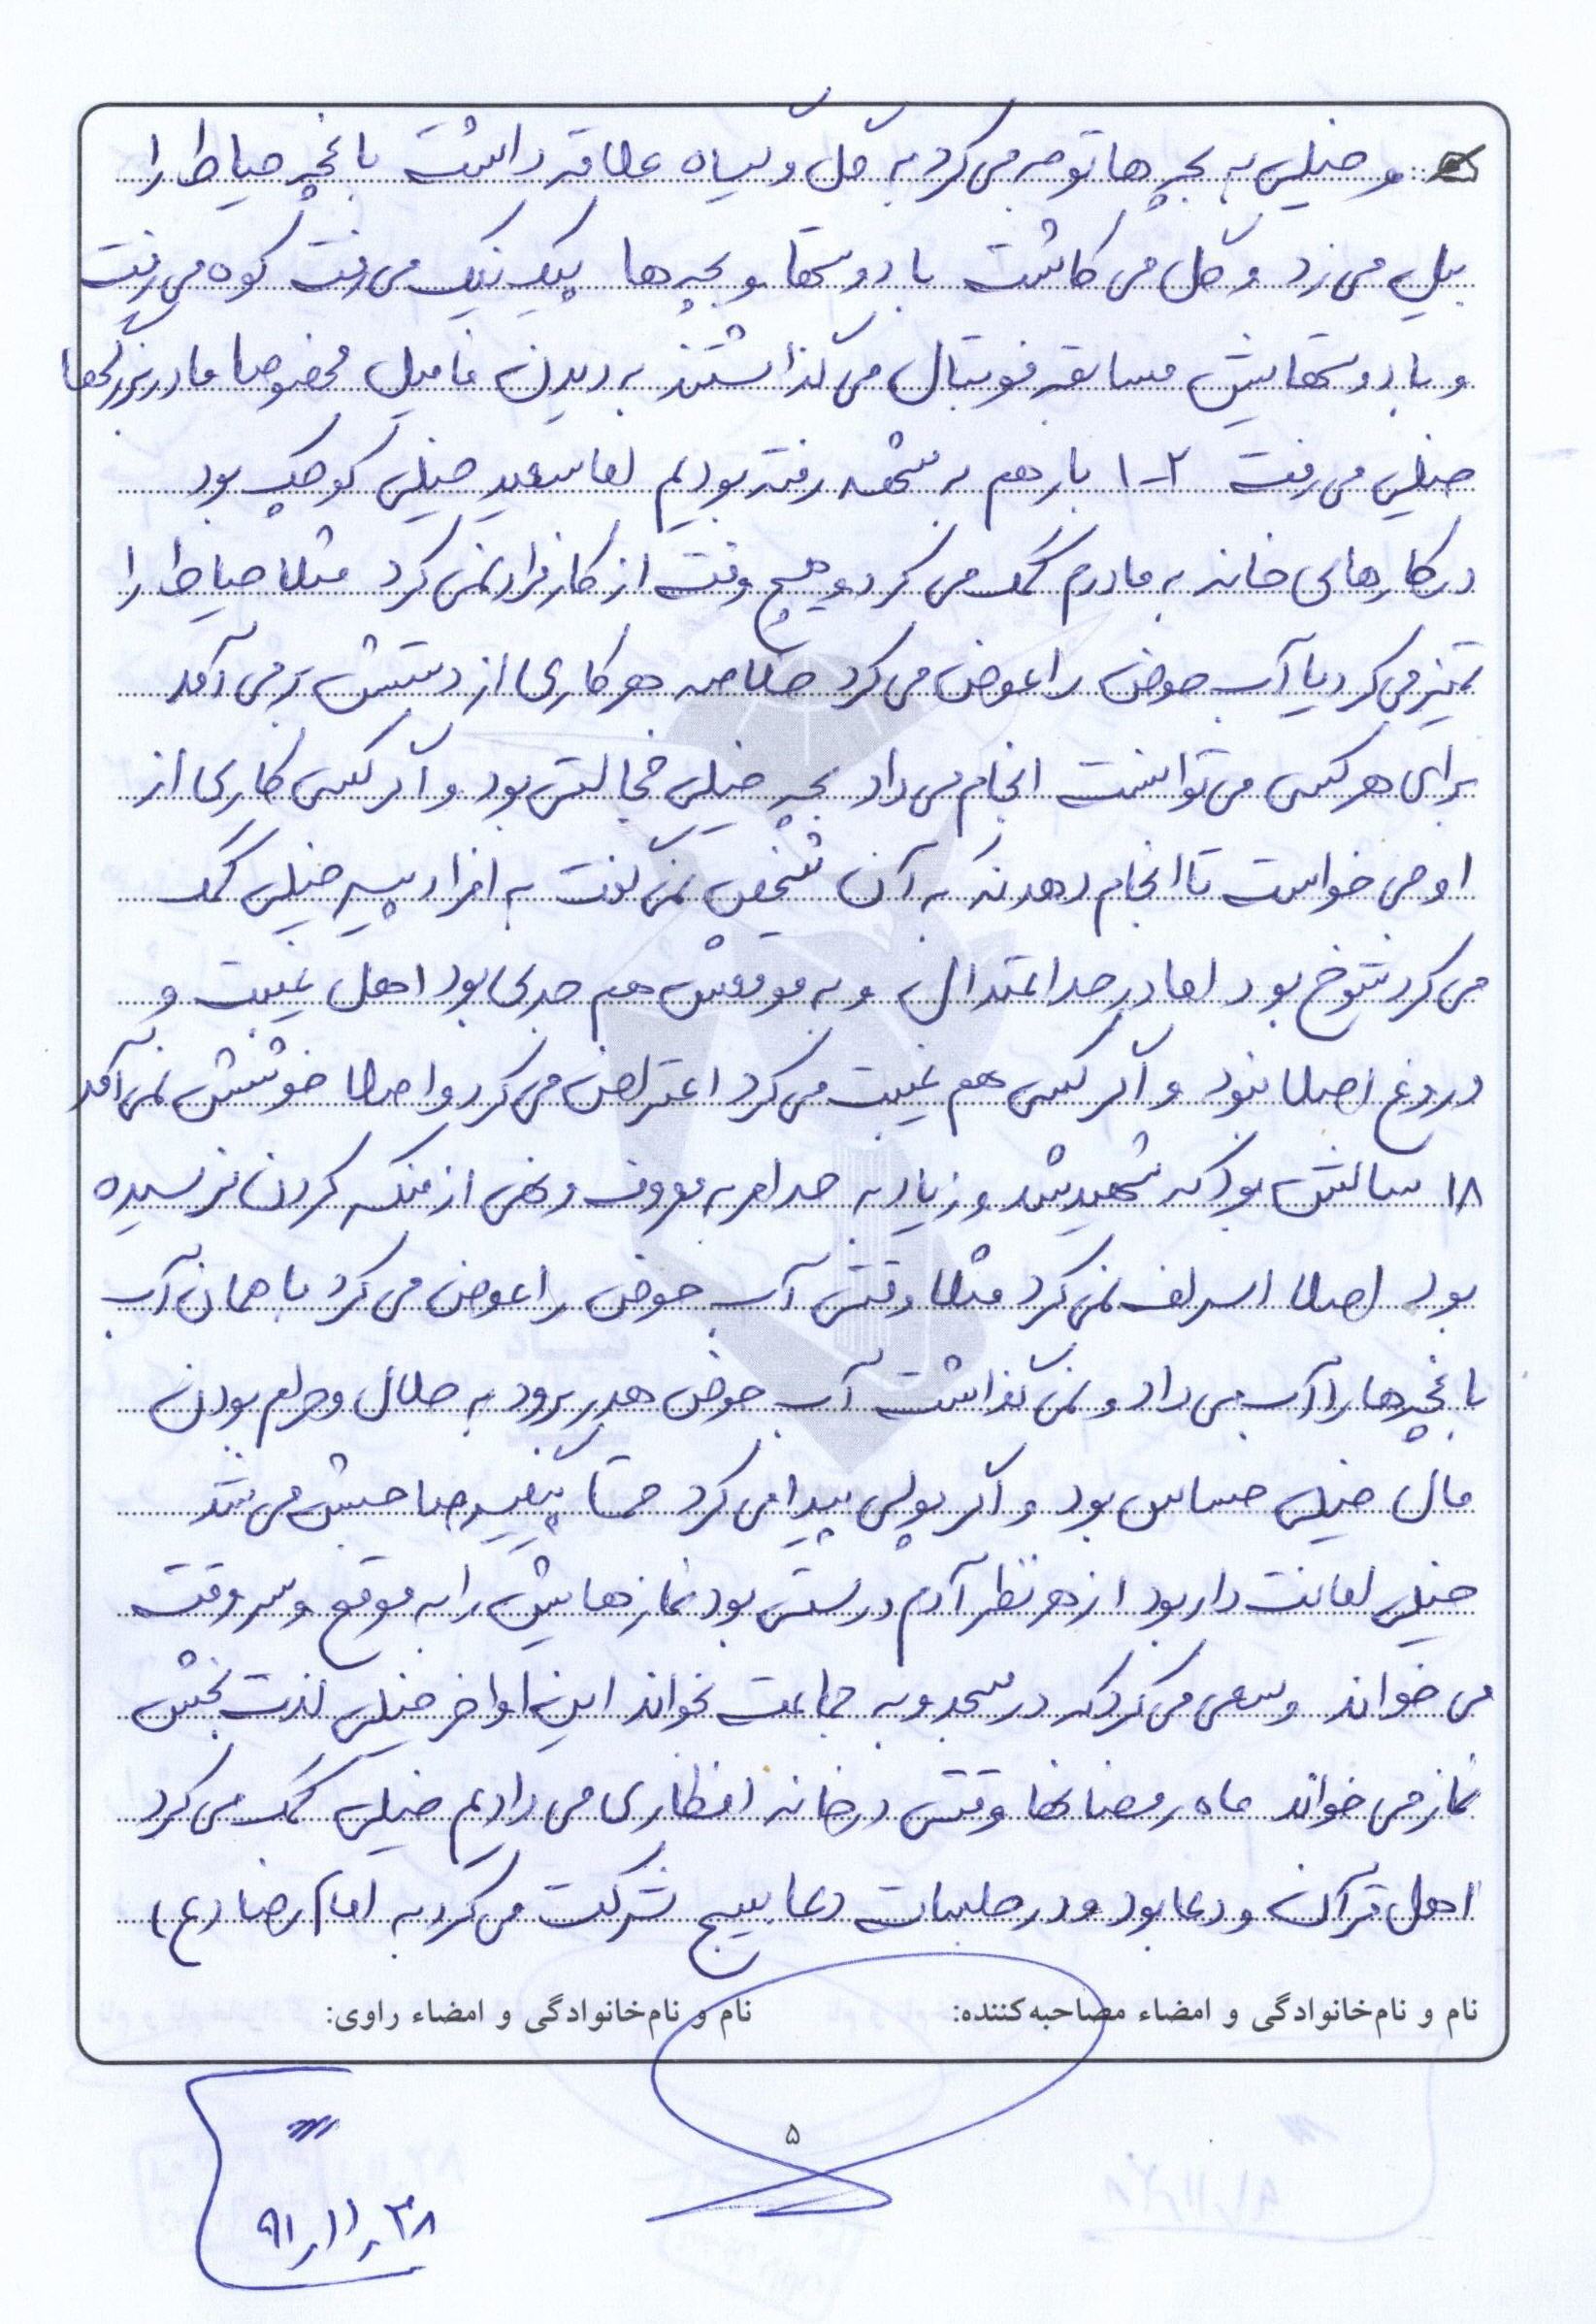 و خیلی به بچه ها توجه می کرد به گل و گیاه علاقه داشت باغچه حیاط را
بیل می زد و گل می کاشت با دوستها و بچه ها پیک نیک می رفت کوه می رفت
و با دوستهایش مسابقه فوتبال می گذاشتند به دیدن فامیل مخصوصا مادربزرگها
خیلی می رفت ۲-۱ بار هم به مشهد رفته بودیم اما سعید خیلی کوچک بود
در کارهای خانه به مادرم کمک می کرد و هیچ وقت از کار فرار نمی کرد مثلا حیاط را
تمیز می کرد یا آب حوض را عوض می کرد خلاصه هر کاری از دستش بر می آمد
برای هر کسی می توانست انجام می داد بچه خیلی خجالتی بود و اگر کسی کاری از
او می خواست تا انجام دهد نه به آن شخص نمی گفت به افراد پیر خیلی کمک
می کرد شوخ بود اما در حد اعتدال و به موقعش هم جدی بود اهل غیبت و
دروغ اصلا نبود و اگر کسی هم غیبت می کرد اعتراض می کرد و اصلا خوشش نمی آمد
۱۸ سالش بود که شهید شد و زیاد به حد امر به معروف و نهی از منکر کردن نرسیده
بود اصلا اسراف نمی کرد مثلا وقتی آب حوض را عوض می کرد با همان آب
باغچه ها را آب می داد و نمی گذاشت آب حوض هدر برود به حلال و حرام بودن
مال خیلی حساس بود و اگر پولی پیدا می کرد حتما پیگیر صاحبش می شد
خیلی امانت دار بود از هر نظر آدم درستی بود نمازهایش را به موقع و سر وقت
می خواند و سعی می کرد که در مسجد و به جماعت بخواند این اواخر خیلی لذت بخش
نماز می خواند ماه رمضانها وقتی در خانه افطاری می دادیم خیلی کمک می کرد
اهل قرآن و دعا بود و در جلسات دعا بسیج شرکت می کرد به امام رضا (ع)
نام و نام‌خانوادگی و امضاء مصاحبه‌کننده: نام و نام‌خانوادگی و امضاء راوی:
۵
۹۱٫۱۱٫۲۸